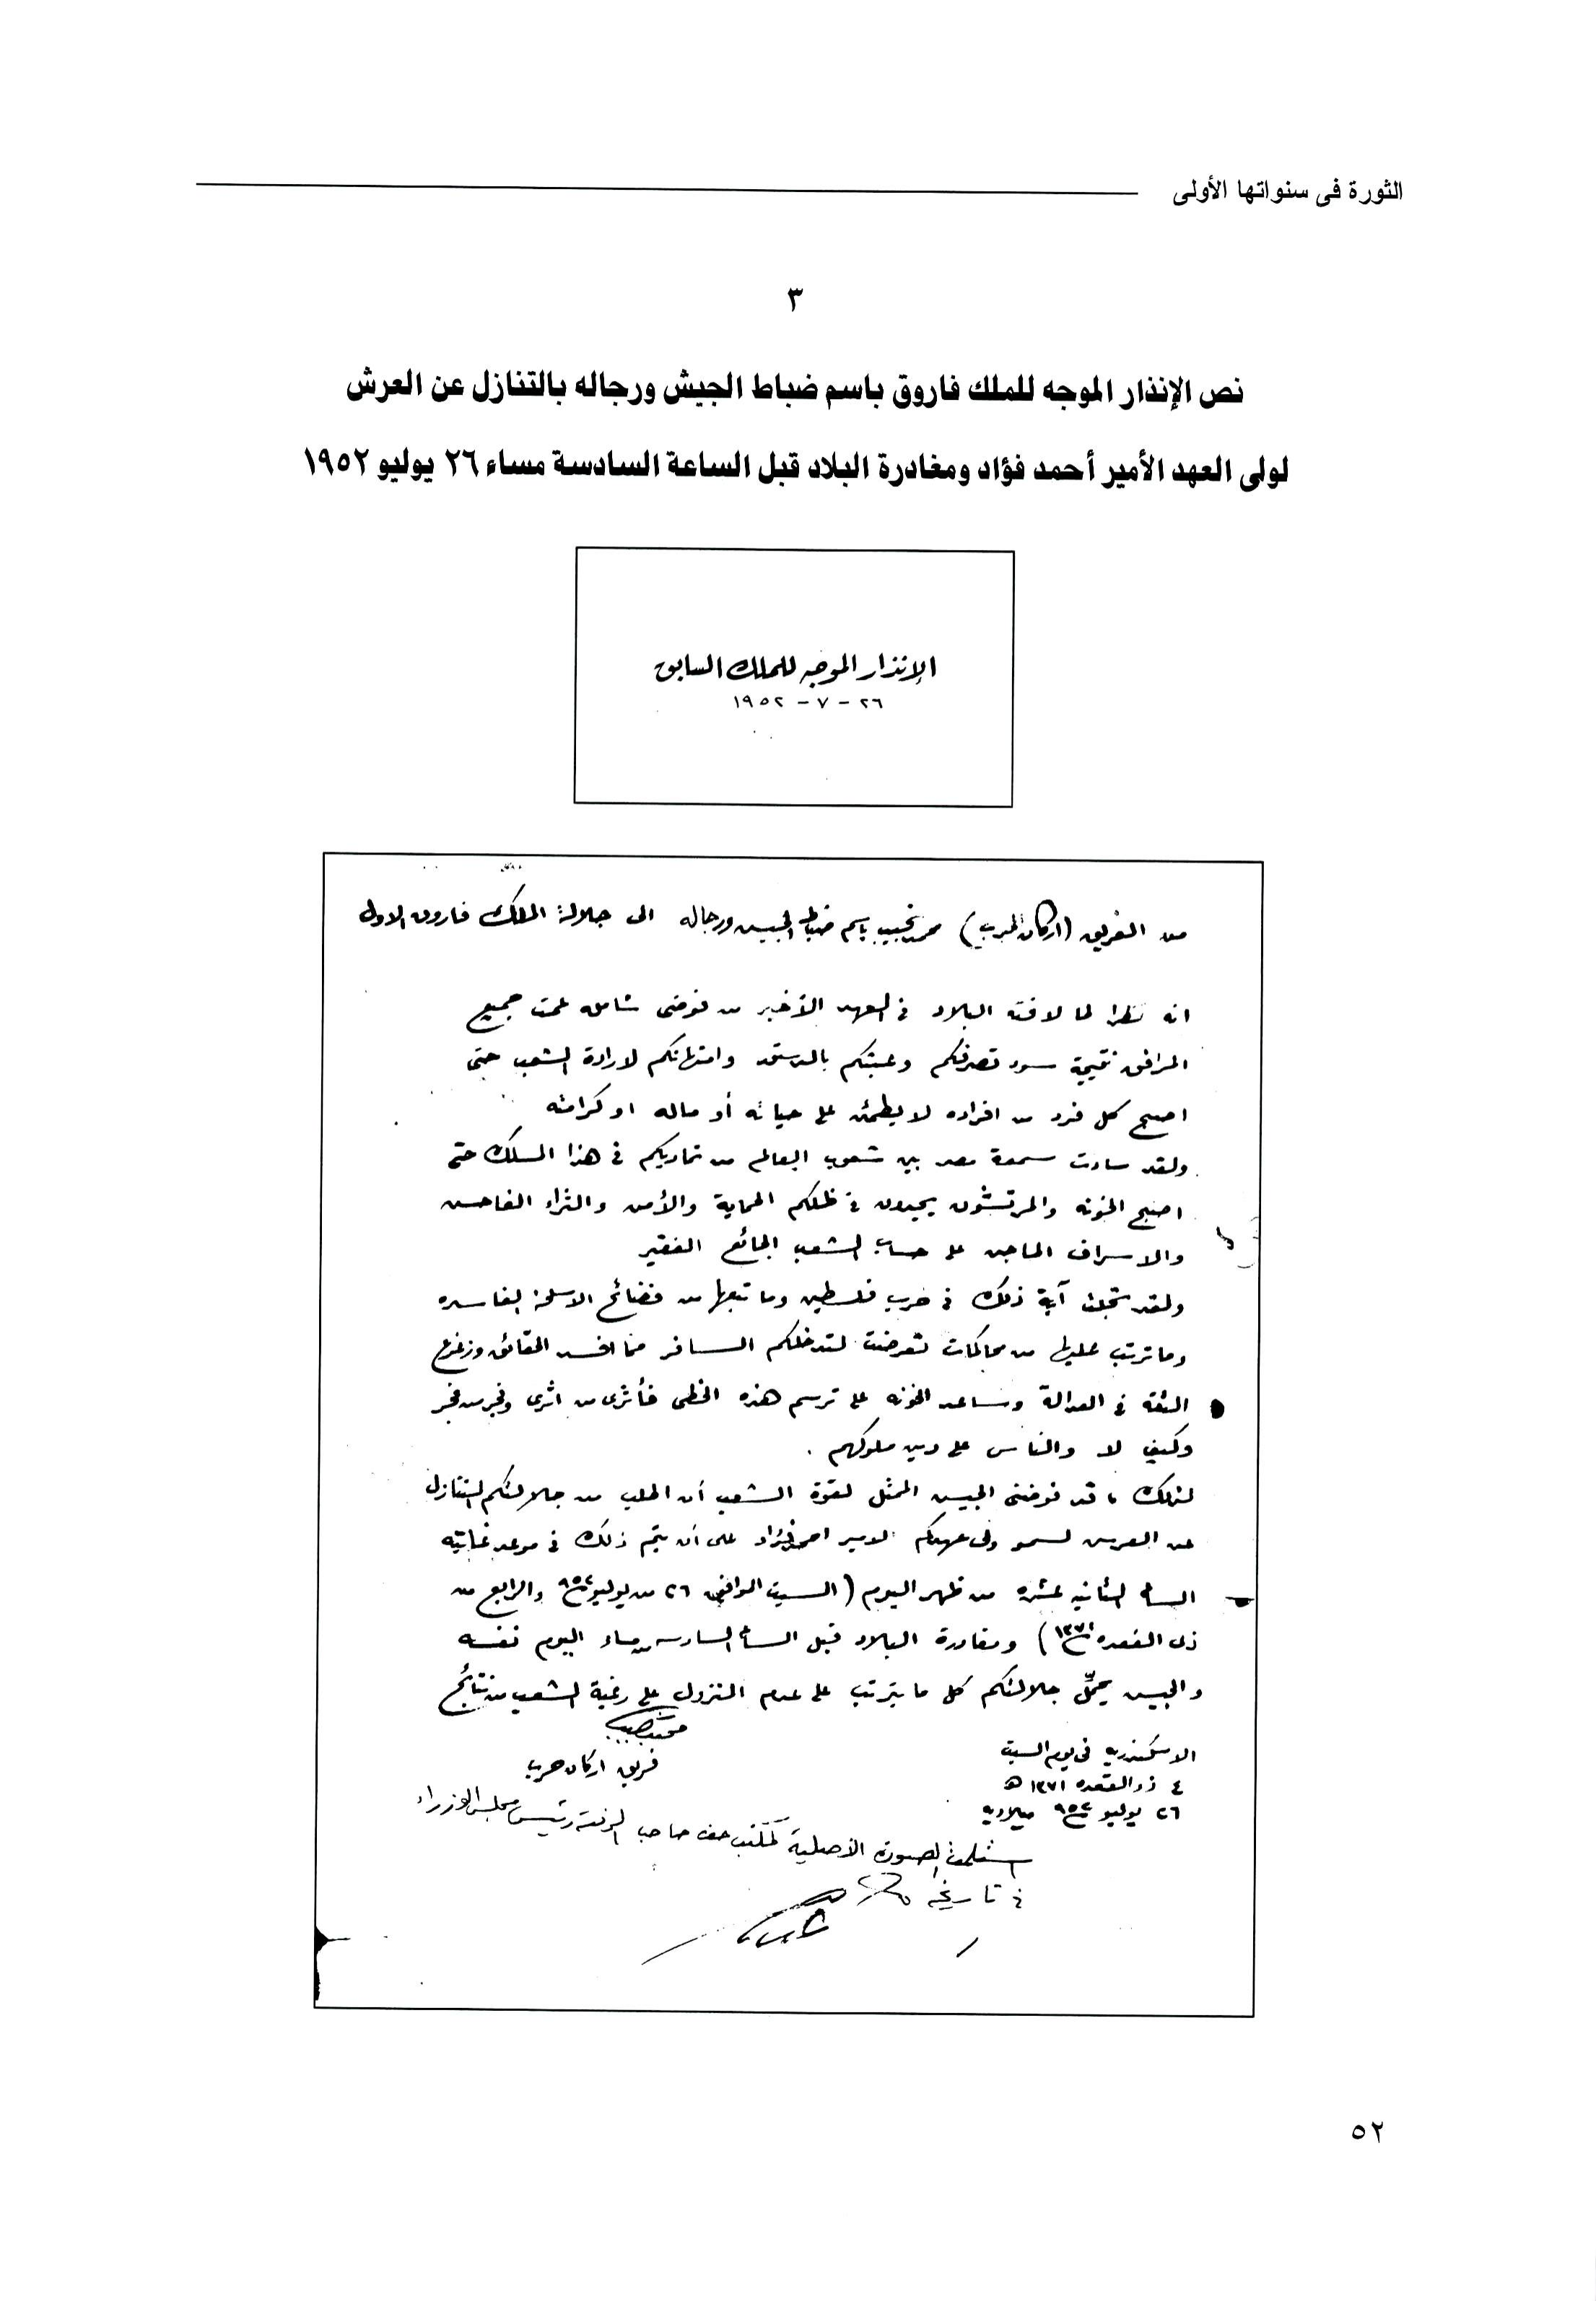 الثورة فى سنواتها الأولى
٣
نص الإنذار الموجه للملك فاروق باسم ضباط الجيش ورجاله بالتنازل عن العرش
لولى العهد الأمير أحمد فؤاد ومغادرة البلاد قبل الساعة السادسة مساء ٢٦ يوليو ١٩٥٢
الإنذار الموجه للملك السابق
٢٦ - ٧ - ١٩٥٢
من الفريق (اركان الحرب) محمد نجيب باسم ضباط الجيش ورجاله الى جلالة الملك فاروق الاول
انه نظرا لما لاقته البلاد فى العهد الأخير من فوضى شاملة عمت جميع
المرافق نتيجة سوء تصرفكم وعبثكم بالدستور وامتهانكم لارادة الشعب حتى
اصبح كل فرد من افراده لا يطمئن على حياته أو ماله او كرامته
ولقد ساءت سمعة مصر بين شعوب العالم من تماديكم فى هذا المسلك حتى
اصبح الخونه والمرتشون يجدون فى ظلكم الحماية والأمن والثراء الفاحش
والاسراف الماجن على حساب الشعب الجائع الفقير
ولقد تجلت آية ذلك فى حرب فلسطين وما تبعها من فضائح الاسلحة الفاسده
وما ترتب عليها من محاكمات تعرضت لتدخلكم السافر مما افسد الحقائق وزعزع
الثقه فى العدالة وساعد الخونه على ترسم هذه الخطى فأثرى من اثرى وفجر من فجر
وكيف لا والناس على دين ملوكهم .
لذلك ، قد فوضنى الجيش الممثل لقوة الشعب أن اطلب من جلالتكم التنازل
عن العرش لسمو ولى عهدكم الامير احمد فؤاد على أن يتم ذلك فى موعد غايته
الساعة الثانيه عشره من ظهر اليوم (السبت الموافق ٢٦ من يوليو ١٩٥٢ والرابع من
ذى القعده ١٣٧١) ومغادرة البلاد قبل الساعة السادسه من مساء اليوم نفسه
والجيش يحمّل جلالتكم كل ما يترتب على عدم النزول على رغبة الشعب من نتائج
محمد نجيب
فريق اركان حرب
الاسكندريه فى يوم السبت
٤ ذو القعده ١٣٧١ هـ
٢٦ يوليو ١٩٥٢ ميلاديه
استلمت الصورة الأصلية لمكتب حضرة صاحب الرفعة رئيس مجلس الوزراء
فى تاريخه
٥٢